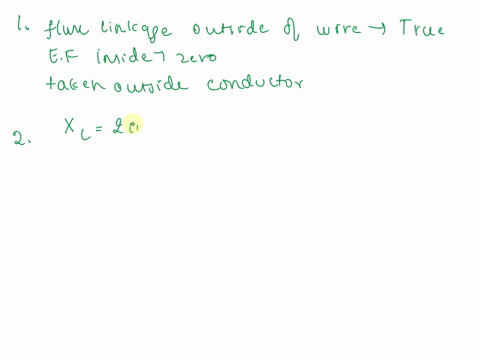 1. flux linkage outside of wire → True
E.F inside → zero
taken outside conductor
2. X_L = 2